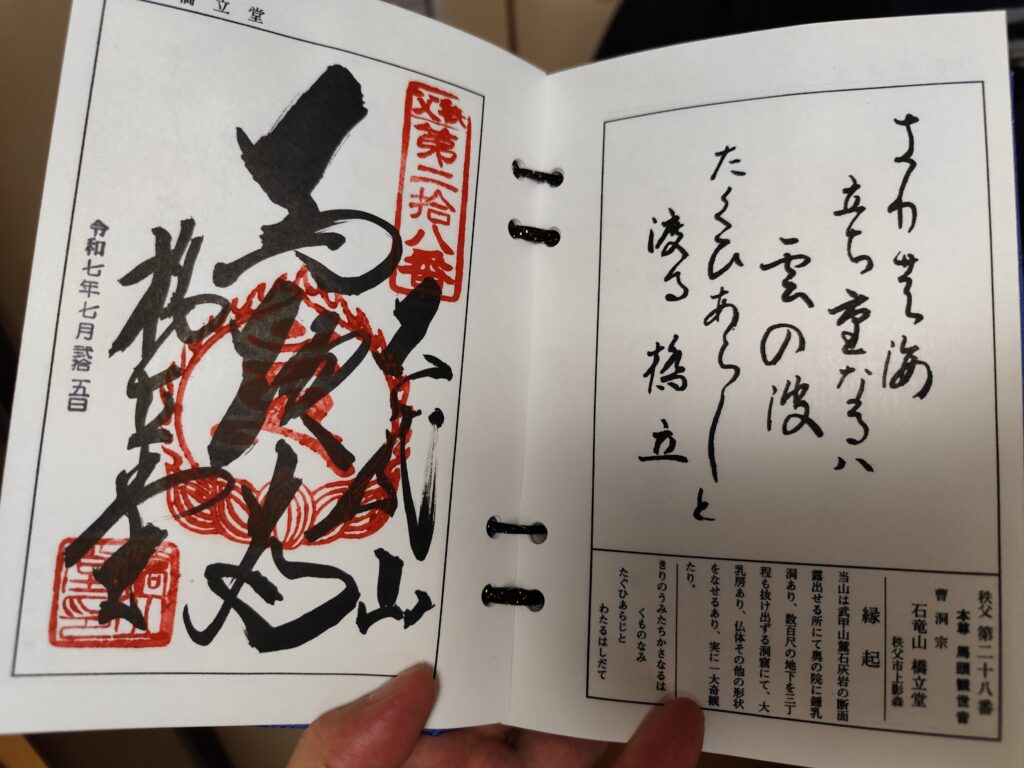 きりの海
立ち重なるハ
雲の波
たくひあらしと
渡る橋立
秩父 第二十八番
本尊 馬頭観世音
曹洞宗
石竜山 橋立堂
秩父市上影森
縁起
当山は武甲山麓石灰岩の断面
露出せる所にて奥の院に鍾乳
洞あり、数百尺の地下を三丁
程も抜け出ずる洞窟にて、大
乳房あり、仏体その他の形状
をなせるあり、実に一大奇観
たり。
きりのうみたちかさなるは
くものなみ
たぐひあらじと
わたるはしだて
立堂
秩父 第二拾八番
橋立堂
令和七年七月 弐拾五日